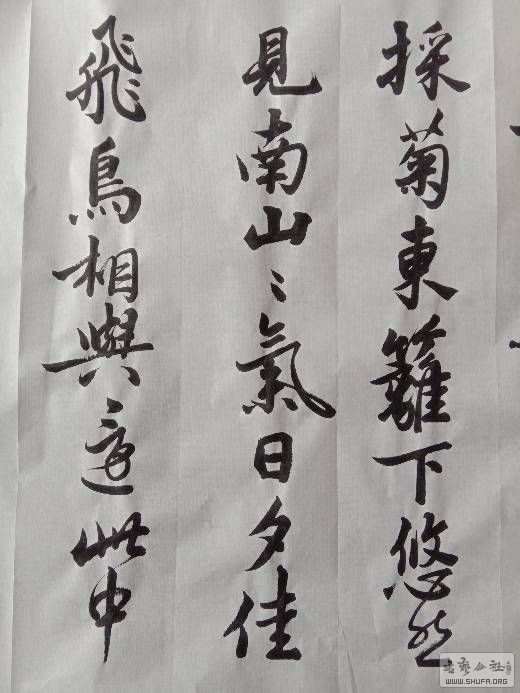 採菊東籬下悠然
見南山〻氣日夕佳
飛鳥相與還此中
書藝公社
WWW.SHUFA.ORG